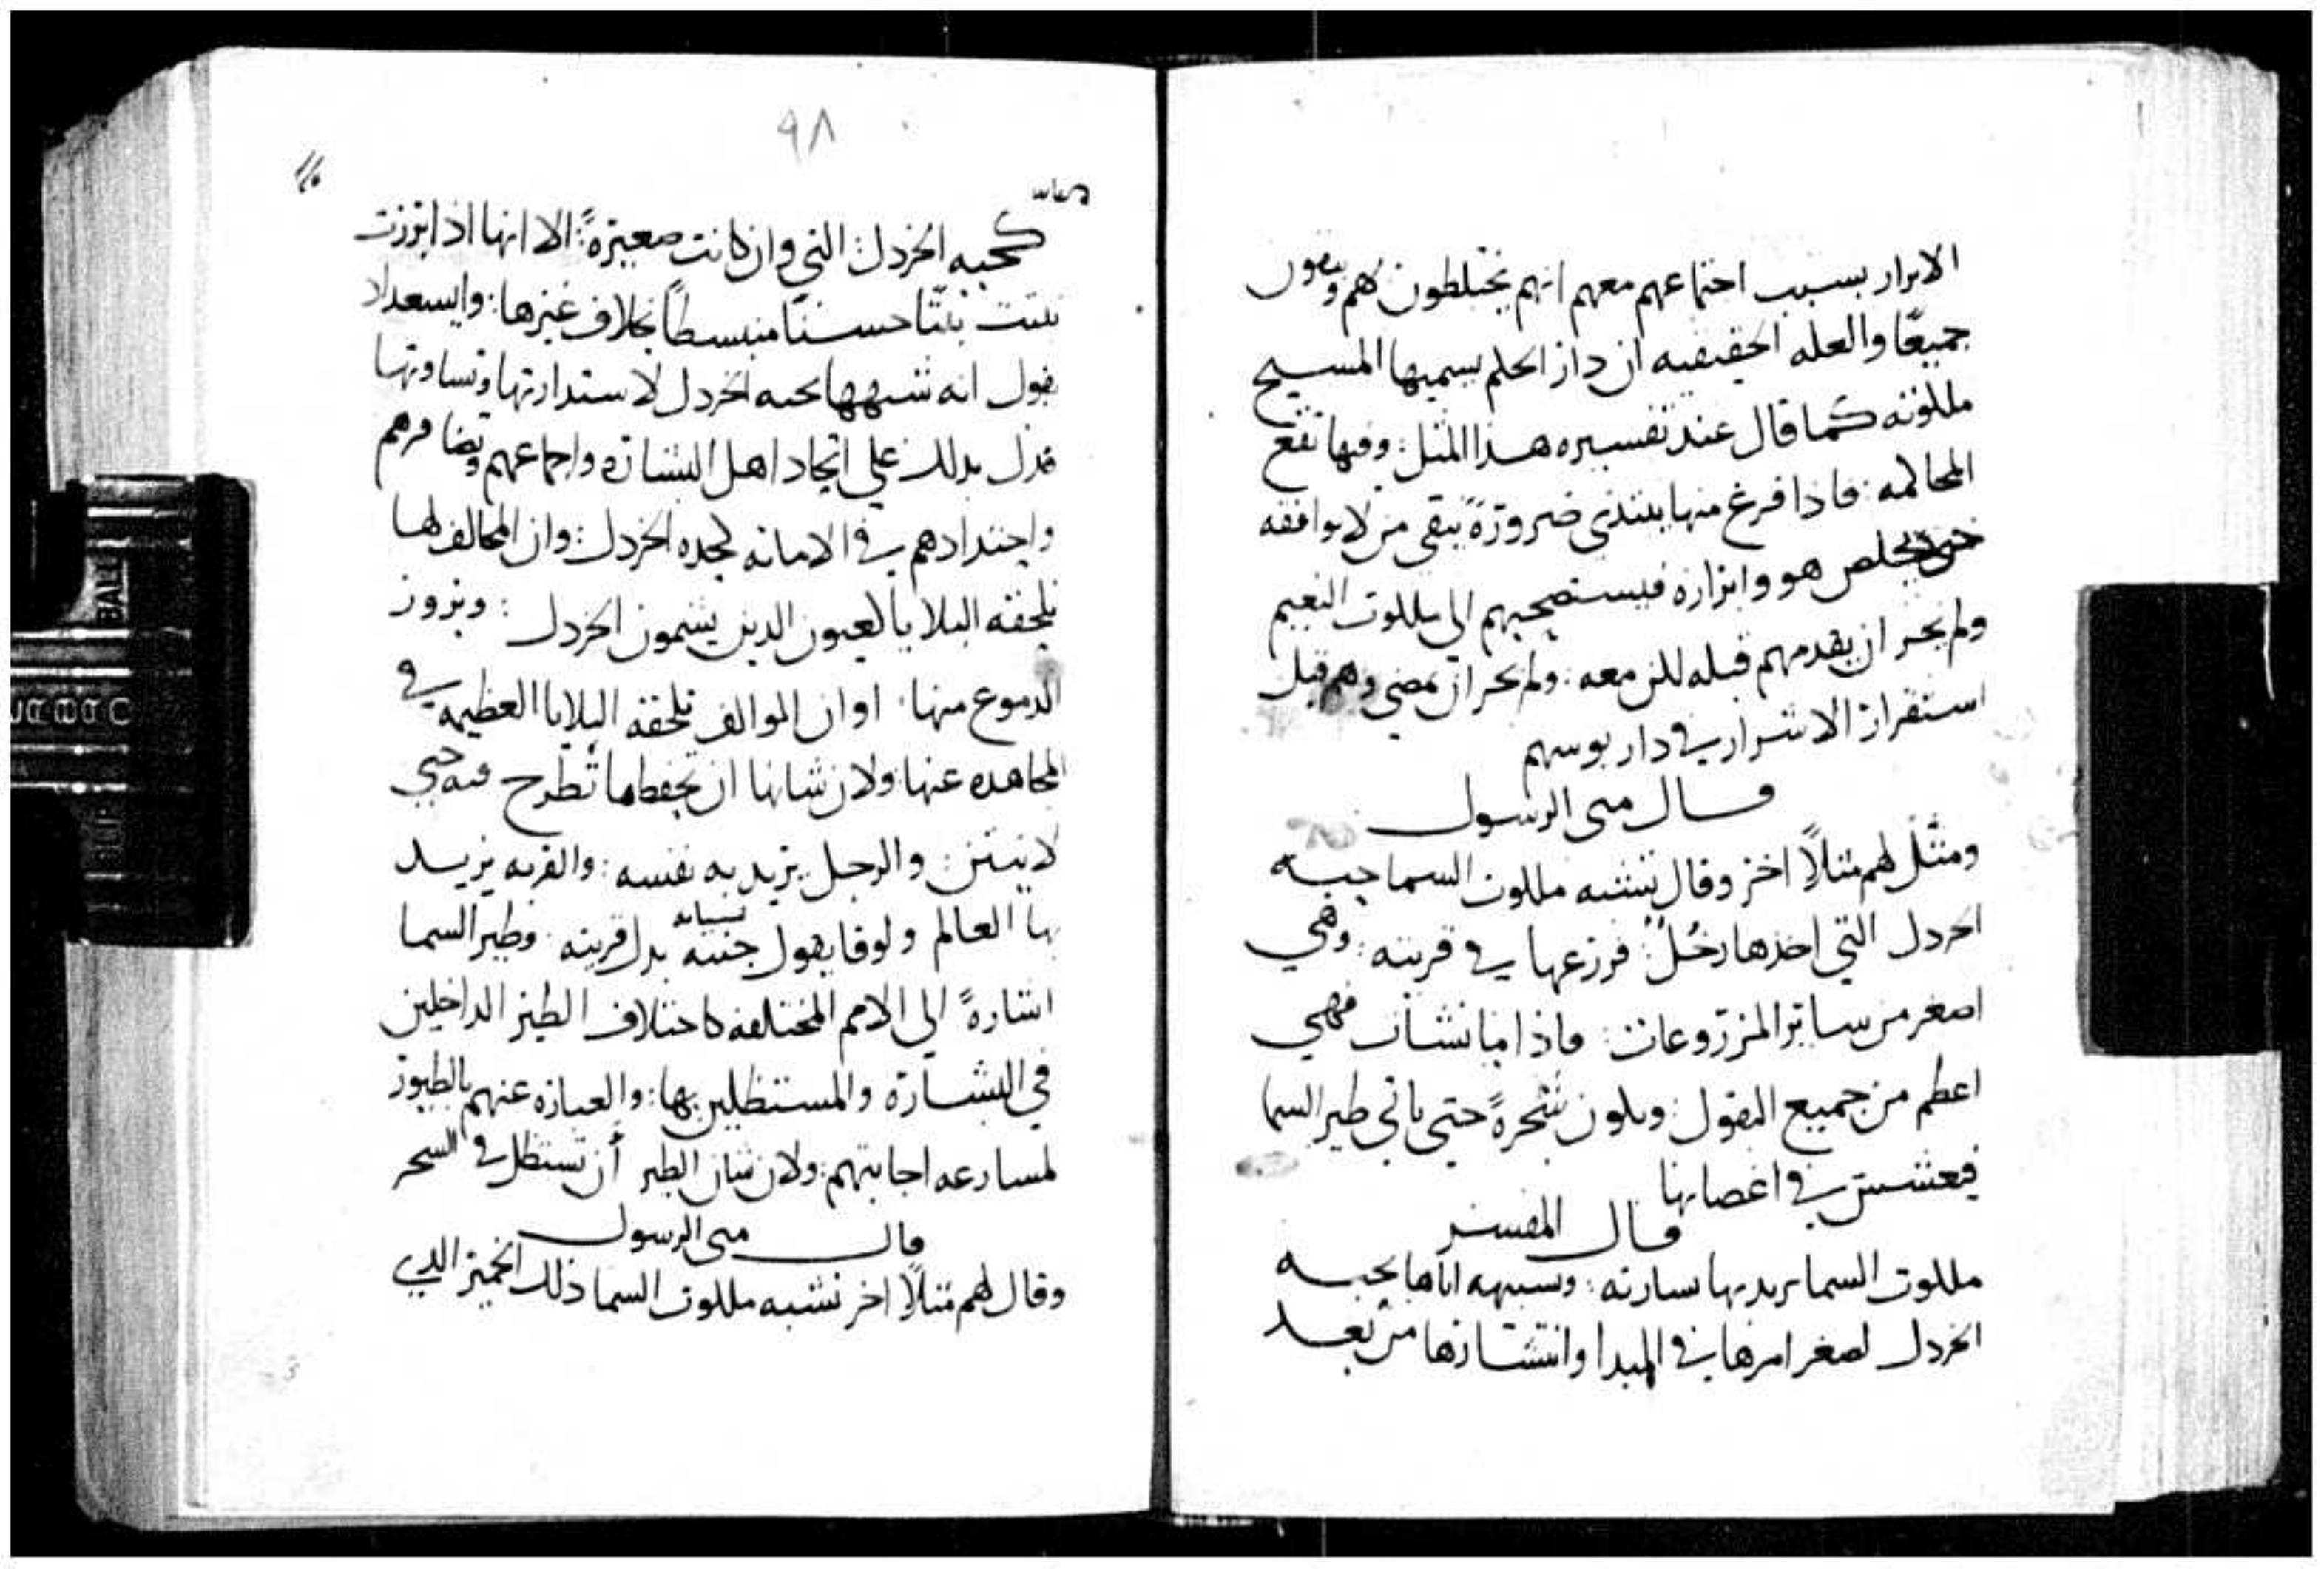 الابرار بسبب اجتماعهم معهم انهم يختلطون لهم ويبقون
جميعًا والعله الحقيقيه ان دار الحكم يسميها المسيح
ملكوته كما قال عند تفسيره هذا المثل: وفيها تقع
المحاكمه: فاذا فرغ منها يبتدى ضرورةً يبقى من لا يوافقه
حتى يخلص هو وابراره فيستصحبهم الى ملكوت النعيم
ولم يجز ان يقدمهم قبله لكن معه: ولم يجز ان يمضي وهم قبل
استقرار الاشرار في دار بوسهم
قال متى الرسول
ومثل لهم مثلاً اخر وقال تشبه ملكوت السما حبه
الخردل التي اخذها رجُلٌ: فزرعها في قريته: وهي
اصغر من ساير المزروعات: فاذا ما نشات فهي
اعظم من جميع البقول: وتكون شجرةً حتى ياتي طير السما
فيعشش في اغصانها
قال المفسر
ملكوت السما يريد بها بشارته: وشبهه اياها بحبه
الخردل لصغر امرها في المبدا وانتشارها من بعد
٩٨
كحبه الخردل: التي وان كانت صغيرةً: الا انها اذا برزت
نبتت نبتًا حسنًا منبسطًا بخلاف غيرها: وابسعداد
يقول انه شبهها بحبه الخردل لاستدارتها وتساوتها
فدل بذلك على اتحاد اهل البشاره واجماعهم وتضافرهم
واحتدادهم في الامانه كحده الخردل: وان المخالف لها
تلحقه البلايا كالعيون الدين يشمون الخردل: وبروز
الدموع منها: او ان الموالف تلحقه البلايا العظيمه في
المجاهده عنها ولان شانها ان تحفظ ما تُطرح فيه حتى
لا ينتن: والرجل يريد به نفسه: والقريه يريد
بها العالم ولوقا يقول جنته بستانه بدل قريته: وطير السما
اشارةً الى الامم المختلفه كاختلاف الطير الداخلين
في البشاره والمستظلين بها: والعباره عنهم بالطيور
لمسارعه اجابتهم: ولان شان الطير أن تستظل في الشجر
قال متى الرسول
وقال لهم مثلاً اخر تشبه ملكوت السما ذلك الخمير الدي